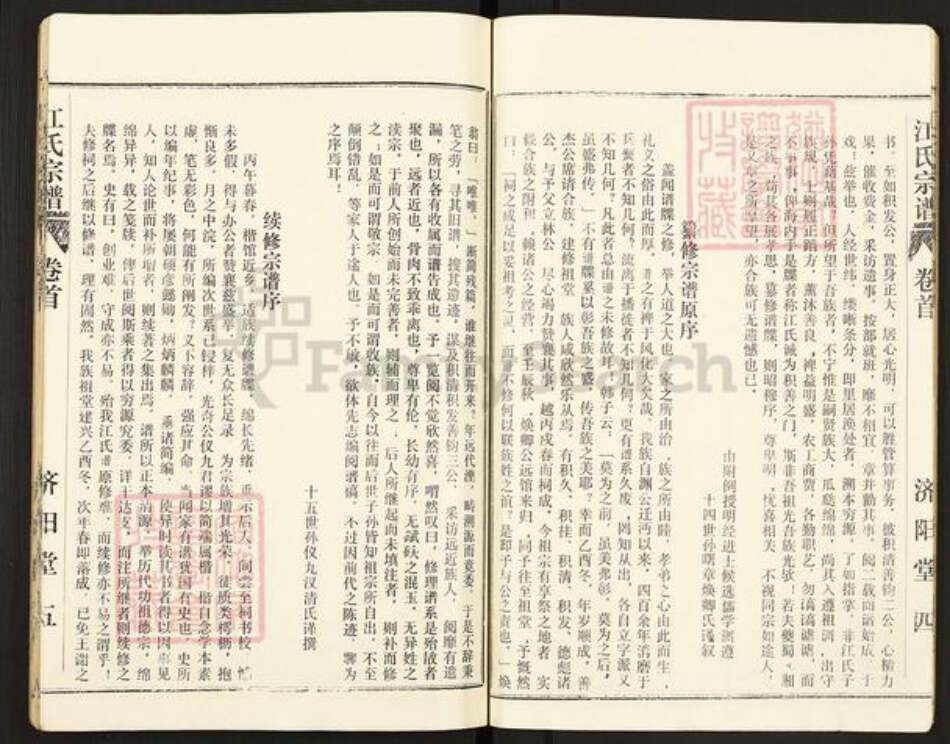 江氏宗谱
卷首
济阳堂
四
书．至如积发公，置身正大，居心光明，可以胜管算事务，彼积清善钧二公，心精力
果，催收费金，采访遗事，按部就班，靡不相宜，章并勷其事，阅二载而谱始成．于
戏：兹举也，人经世纬，缕晰条分，即里居涣处者，溯本穷源，了如指掌．非江氏子
孙凭藉基哉？但所望于吾族者，不宁惟是嗣贤族大，瓜瓞绵绵，尚其入遵祖训，出守
族规，士则履正蹈方，薰沐善良，裨益明盛，农工商贾，各勤职艺，勿谪谪谑，而
不事事，俾海内于是牒者称江氏诚为积善之门，斯非吾祖光吾族光欤！若夫夔蜀，湘
之族，苟其各展孝思，纂修谱牒，则昭穆序，尊卑明，忧喜相关，不视同宗如途人，
是又章之所厚望，亦合族可无遗憾也已．
由附例授明经进士候选儒学训导
十四世孙曙章焕卿氏谨叙
纂修宗谱原序
盖闻谱牒之修，举人道之大也，家之所由治，族之所由睦，孝弟之心由此而生，
礼义之俗由此而厚，谱之有裨于风化大矣哉，我族自渊公迁沔以来，四百余年消磨于
兵燹者不知几何，流离于播徙者不知几何？更有谱系久废，罔知从出，各自立字派又
不知几何？凡此者总由谱之未修故耳，韩子云：「莫为之前，虽美弗彰，莫为之后，
虽盛弗传．」不有谱牒奚以彰吾族之盛，传吾族之美耶？幸而乙酉冬，年岁顺成，善
杰公席请合族，建修祖堂，族人咸欣然乐从焉．有积久、积挂、积清、积发、德彪诸
公，与予父立林公，尽心竭力赞襄其事，越丙戌春而祠成，今祖宗有享祭之地者，实
赖合族之附和，赖诸公之经营，至壬辰秋，焕卿公远馆来归，同予往至祖堂，予慨然
曰：「祠之成足以妥祖考之灵，而谱不修何以联族姓之谊？是即予与公之责也．」焕
江氏宗谱
卷首
济阳堂
五
翁曰：「唯唯．」断简残篇，谁继往而开来？年远代湮，畴溯源而竟委，于是不辞秉
笔之劳，寻其旧谱，搜其遗迹，谋及积清积发善钧三公，采访远近族人，阅靡有遗
漏，所以各有收属而谱告成也．予一览阅不觉欣然喜，喟然叹曰，修理谱系是殆故者
聚也，远者近也，骨肉不致乖离也，尊卑有伦，长幼有序，无碔砆之混玉，无异姓之
渎宗，于前人所创始而未完善者，则辅而理之；后人所继起而未填注者，则补而修
之：如是而可谓敬宗，如是而可谓收族，自今以往而后世子孙皆知祖宗所自出，不至
颠倒错乱，等家人于途人也，予不敏，欲体先志编阅谱稿，不过因前代之陈迹，聊为
之序焉耳！
十五世孙仪九汉清氏谨撰
续修宗谱序
丙午暮春，楷馆近乡，适族续修谱牒，编长先绪，垂示后人，间尝至祠书校，惟
未多假，得与办公者赞襄兹盛举，复无众长足录，为宗族增其光荣，徒质类樗栎，抱
惭良多，月之中浣，所编次世系已锓梓，光奇公仪九君谬以简端属楷，楷自念学本素
虚，笔无彩色，何能有所阐发？义不容辞，强应其命，当闻家有谱犹国有史也，史所
以编年纪事，将屡朝硕彦懿勋，炳炳麟麟，垂诸简编，使异时读其书者得以因事见
人，知人论世而补所瑕者，则续著之集出焉．谱所以正本清源，举历代功祖德宗，绵
绵异异，载之笺牍，俾后世阅斯乘者得以穷源究委，详士达支，而注所继者则续修之
牒名焉．史有曰，创业难，守成亦不易，殆我江氏谱原修难，而续修亦不易之谓乎！
夫修祠之后继以修谱，理有固然，我族祖堂建兴乙酉冬，次年春即落成，已免王谢之
FamilySearch